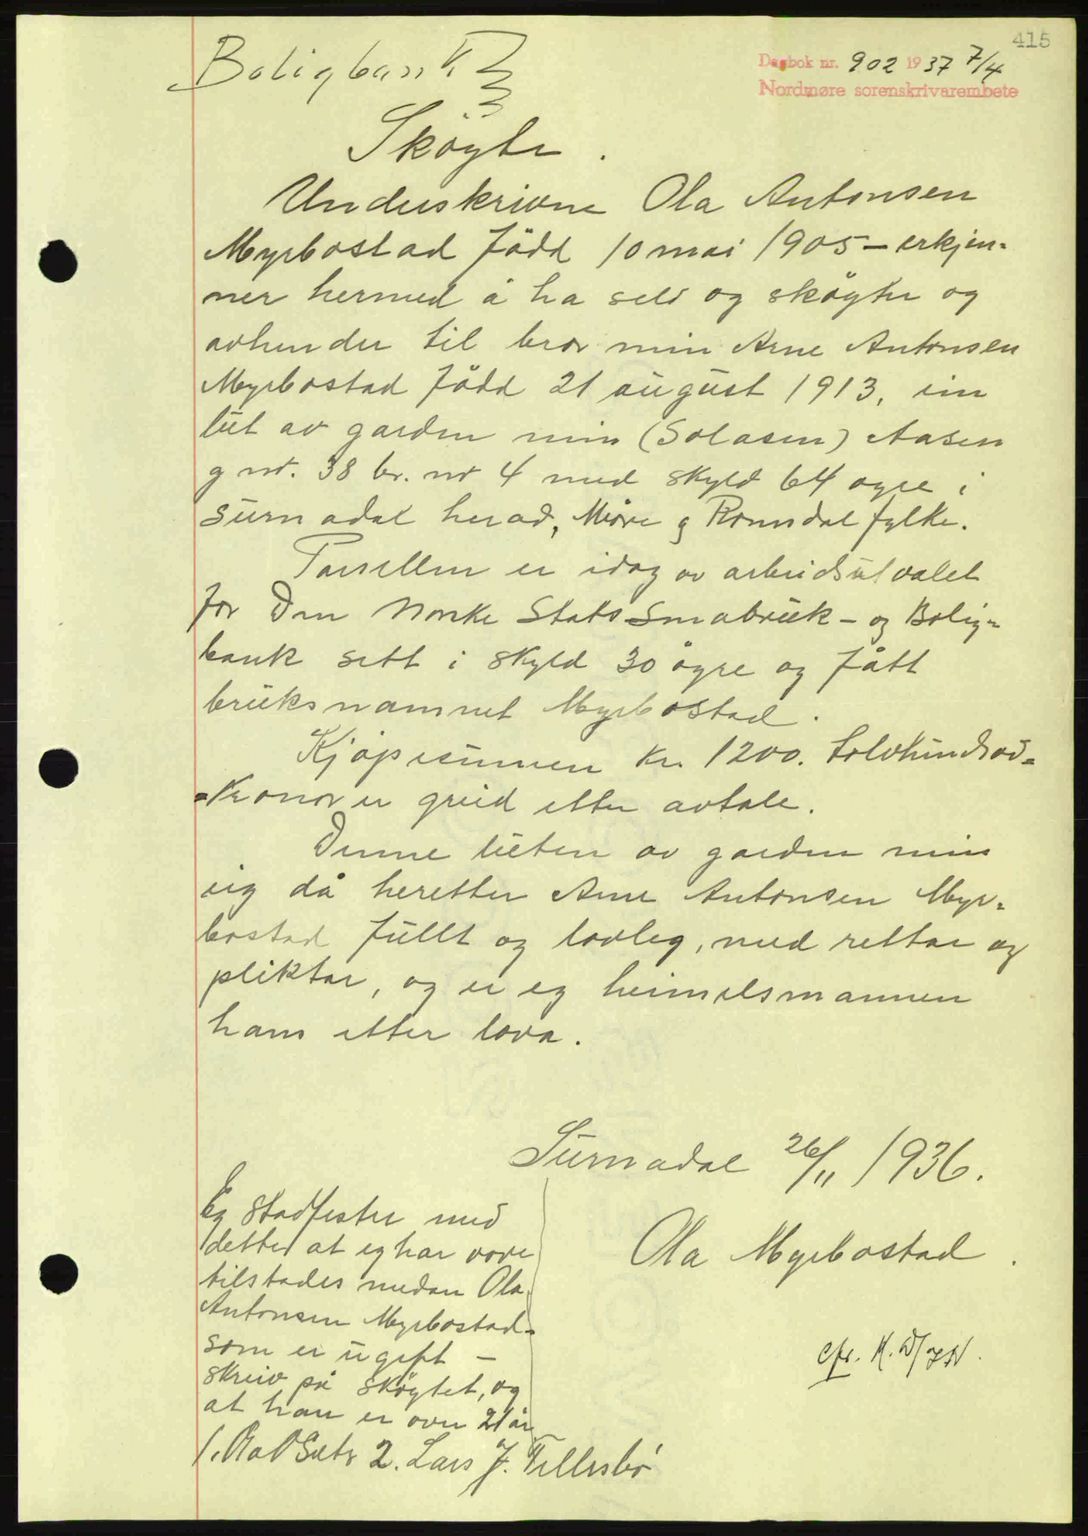 415
Boligbank
Dagbok nr. 902 1937 7/4
Nordmøre sorenskrivarembete
Skøyte.
Underskrivne Ola Antonsen
Myrbostad fødd 10 mai 1905 – erkjen-
ner hermed å ha seld og skøyter og
avhender til bror min Arne Antonsen
Myrbostad fødd 21 august 1913, ein
lut av garden min (Solasen) Aasen
g nr. 38 br. nr 4 med skyld 64 øyre i
Surnadal herad, Møre og Romsdal fylke.
Parsellen er idag av arbeidsutvalet
for Den Norske Stats Småbruk- og Bolig-
bank sett i skyld 30 øyre og fått
bruksnamnet Myrbostad.
Kjøpesummen kr. 1200. tolvhundrad-
-kronor er greid etter avtale.
Denne luten av garden min
eig då heretter Arne Antonsen Myr-
bostad fullt og lovleg, med rettar og
pliktar, og er eg heimelsmannen
hans etter lova.
Surnadal 26/11 1936.
Ola Myrbostad.
Eg stadfester med
dette at eg har vore
tilstades medan Ola
Antonsen Myrbostad-
som er ugift –
skreiv på skøytet, og
at han er over 21 år
1. Ola O Sæter 2. Lars J. Tellesbø
cfr.